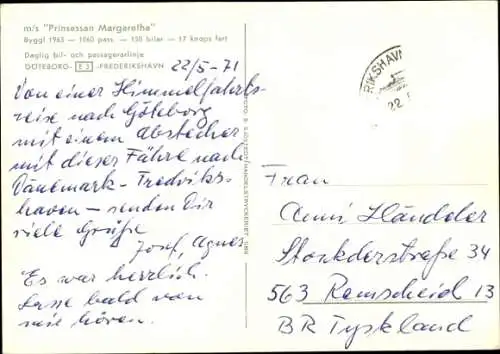 m/s "Prinsessan Margaretha"
Byggt 1963 — 1060 pass. — 150 bilar — 17 knops fart
Daglig bil- och passagerarlinje
GÖTEBORG- E 3 -FREDERIKSHAVN
22/5-71
Von einer Himmelfahrts-
reise nach Göteborg
mit einem Abstecher
mit dieser Fähre nach
Dänemark - Fredriks-
haven - senden Dir
viele Grüße
Josef, Agnes
Es war herrlich.
Lasse bald von
mir hören.
RIKSHAVN
22.
Frau
Anni Händeler
Stockderstraße 34
563 Remscheid 13
BR Tyskland